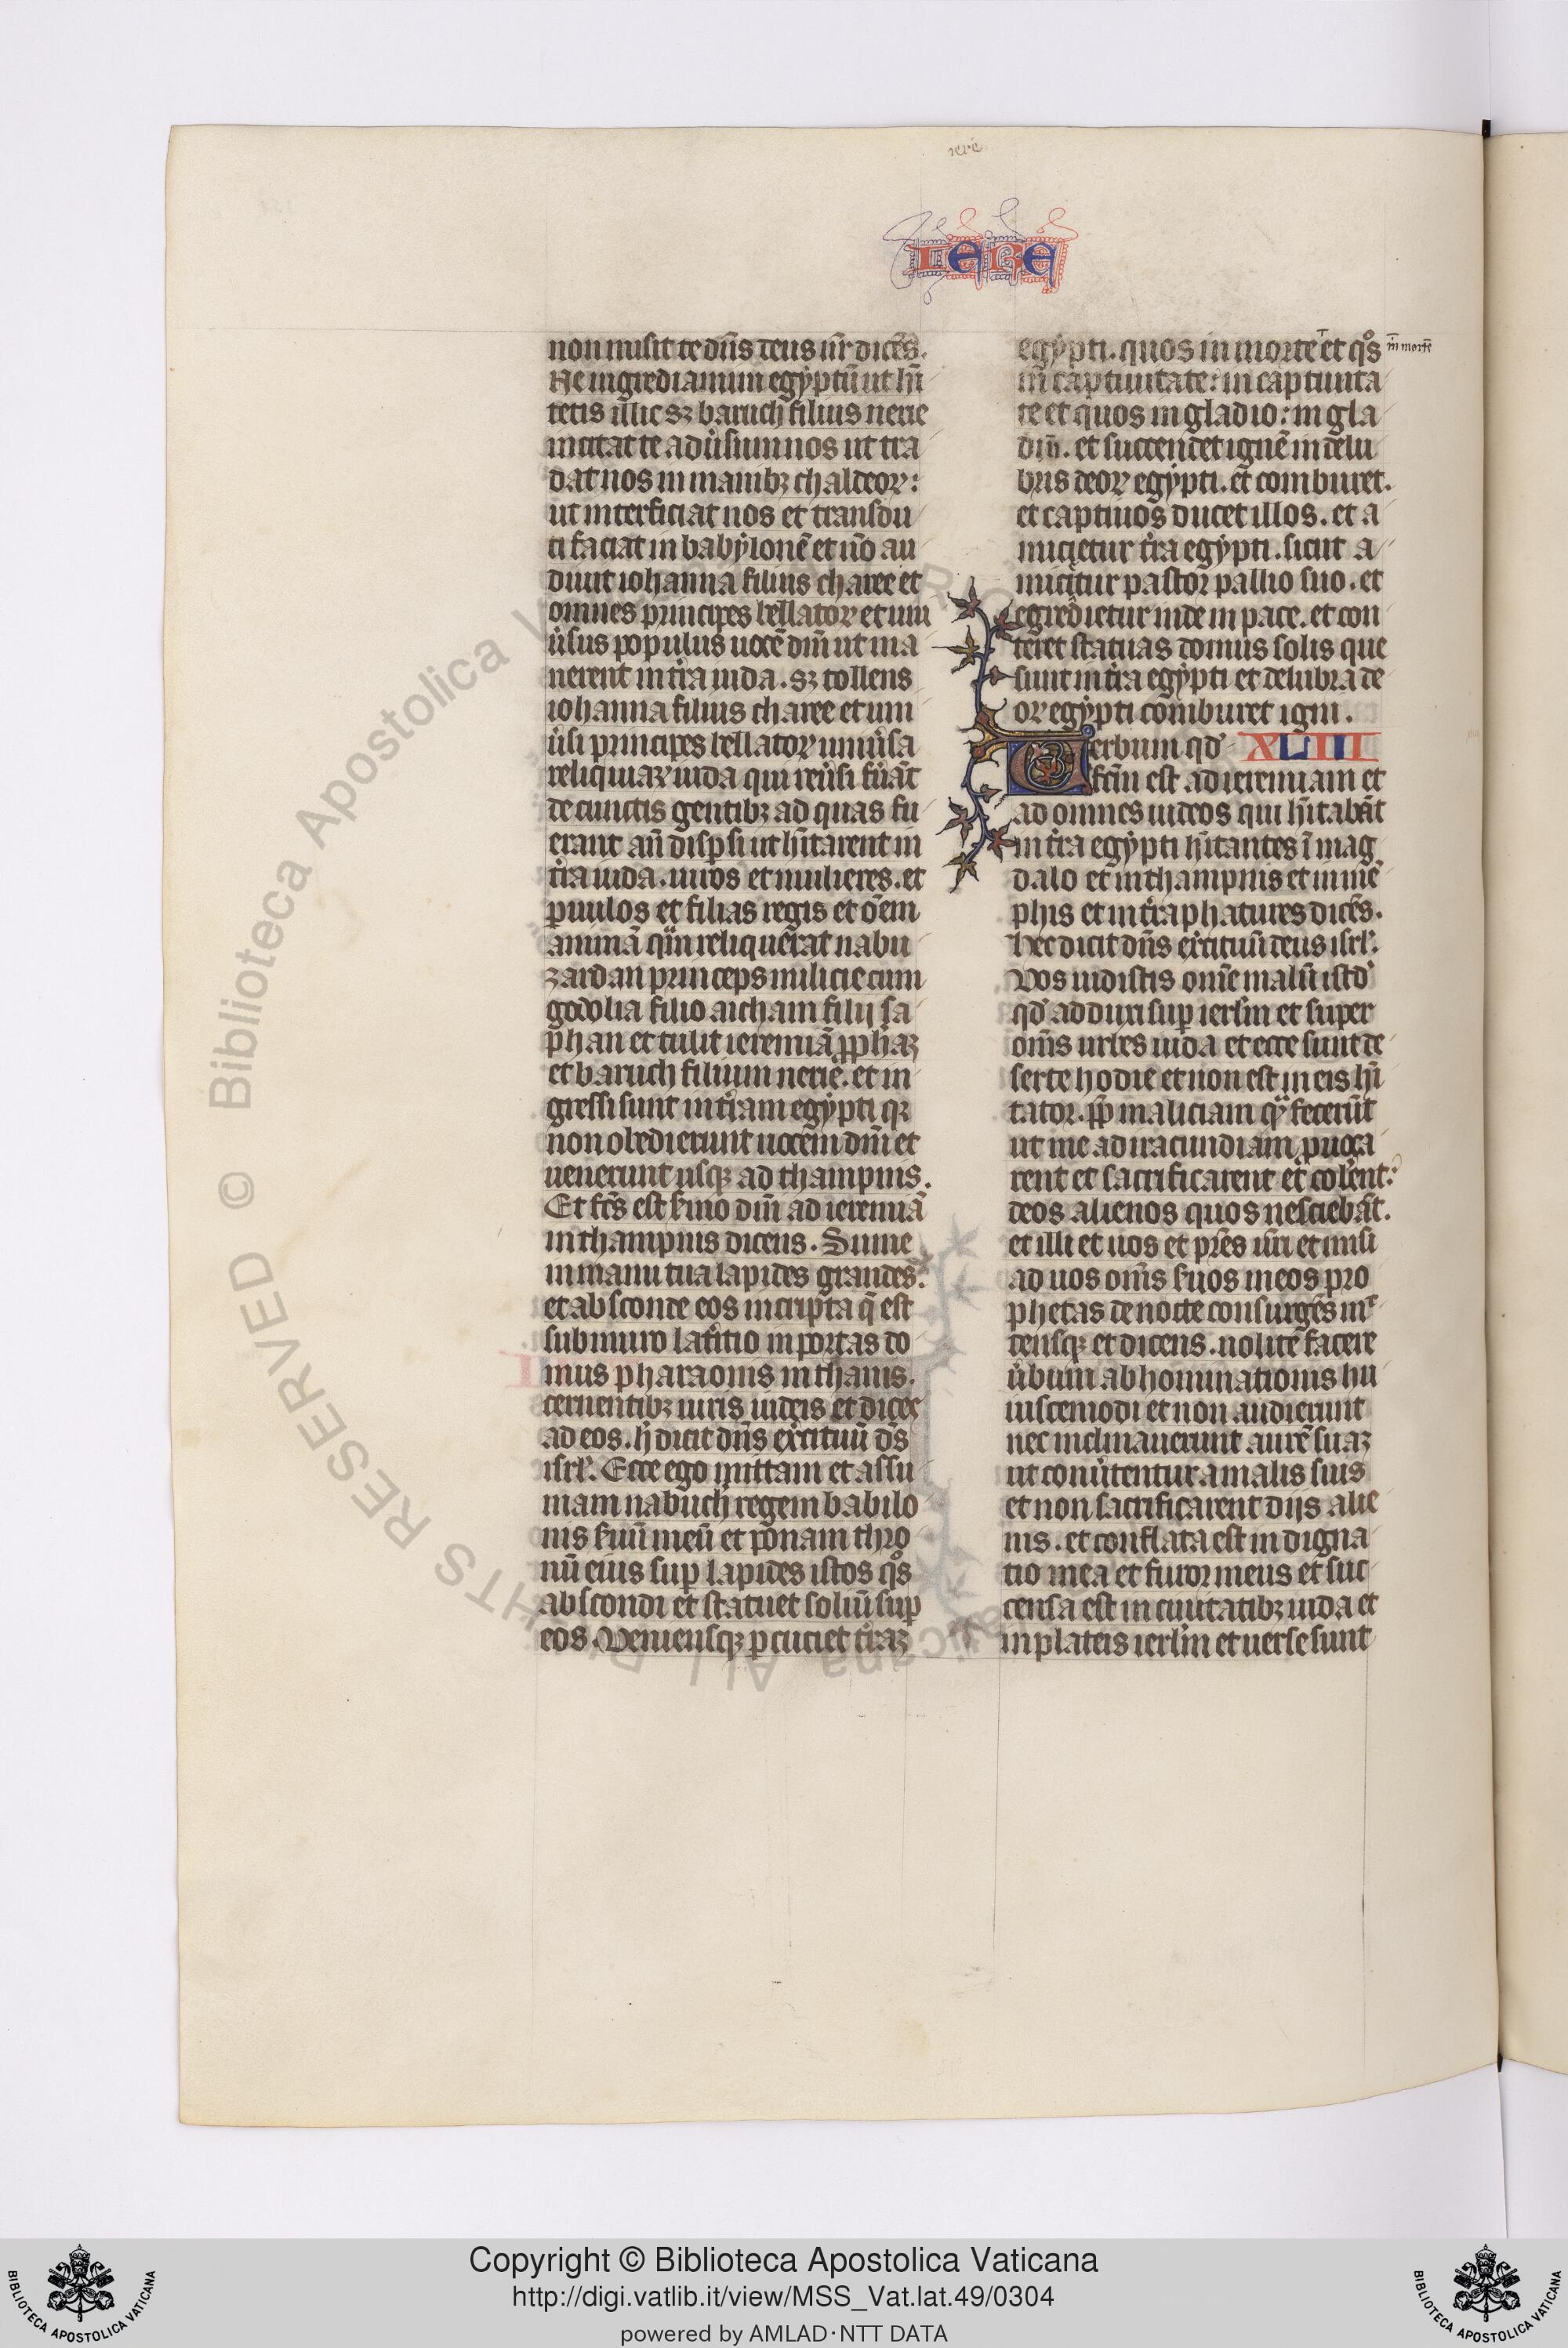 iere
IERE
non misit te dn̄s deus nr̄ dicēs.
Ne ingrediamini egyptū ut hī
tetis illic sꝫ baruch filius nerie
incitat te adu̾sum nos ut tra
dat nos in manibꝫ chaldeoꝝ:
ut interficiat nos et transdu
ci faciat in babylonē et nō au
diuit iohanna filius charee et
omnes principes bellatoꝝ et uni
u̾sus populus uocē dn̄i ut ma
nerent in tr̄a iuda. sꝫ tollens
iohanna filius charee et uni
u̾si principes bellatoꝝ uniu̾sa
reliquiaꝝ iuda qui reu̾si fūāt
de cunctis gentibꝫ ad quas fu
erant an̄ disꝑsi ut hītarent in
tr̄a iuda. uiros et mulieres. et
ꝑuulos et filias regis et oēm
animā qm̄ reliquerat nabu
zardan princeps milicie cum
godolia filio aicham filij sa
phan et tulit ieremiā ꝓphaꝫ
et baruch filium nerie. et in
gressi sunt in tr̄am egypti qꝛ
non obedierunt uocem dn̄i et
uenerunt usqꝫ ad thampnis.
Et fc̄s est s̾mo dn̄i ad ieremiā
in thampnis dicens. Sume
in manu tua lapides grandes:
et absconde eos in cripta q̄ est
sub muro lat̾itio in portas do
mus pharaonis in thanis.
cernentibꝫ uiris iudeis et dices
ad eos. h̾ dicit dn̄s ex̾cituū ds̄
isrl̾. Ecce ego mittam et assu
mam nabuch̾ regem babilo
nis s̾uū meū et ponam thro
nū eius suꝑ lapides istos qͦs
abscondi et statuet soliū suꝑ
eos. Veniensqꝫ ꝑcuciet tr̄aꝫ
egypti. quos in morte et qͦs
ī morte
in̄ captiuitate: in captiuita
te et quos in gladio: in gla
diū. et succendet ignē in delu
bris deoꝝ egypti. et comburet.
et captiuos ducet illos. et a
micietur tr̄a egypti. sicut a
micitur pastor pallio suo. et
egredietur inde in pace. et con
teret statuas domus solis que
sunt in tr̄a egypti et delubra de
oꝝ egypti comburet igni.
Verbum qd̾ XLIIII
fc̄m est ad ieremiam et
ad omnes iudeos qui hītabāt
in tr̄a egypti hītantes ī mag
dalo et in thampnis et in mē
phis et in tr̄a phatures dicēs.
hec dicit dn̄s ex̾cituū deus isrl̾.
Vos uidistis om̄e malū istd̾
qd̾ adduxi suꝑ ierlm̄ et super
om̄s urbes iuda et ecce sunt de
serte hodie et non est in eis hī
tator. ꝓp̄ maliciam qᷓ fecerūt
ut me ad iracundiam ꝓuoca
rent et sacrificarent et colerent:
deos alienos quos nesciebāt.
et illi et uos et pr̄es ur̄i et misi
ad uos om̄s s̾uos meos pro
phetas de nocte consurgēs mit
tensqꝫ et dicens. nolite facere
u̾bum abhominationis hu
iuscemodi et non audierunt
nec inclinauerunt aurē suaꝫ
ut conu̾tentur a malis suis
et non sacrificarent dijs alie
nis. et conflata est indigna
tio mea et furor meus et suc
censa est in ciuitatibꝫ iuda et
in plateis ierlm̄ et uerse sunt
© Biblioteca Apostolica Vaticana ALL RIGHTS RESERVED
Copyright © Biblioteca Apostolica Vaticana
http://digi.vatlib.it/view/MSS_Vat.lat.49/0304
powered by AMLAD·NTT DATA
BIBLIOTECA APOSTOLICA VATICANA
BIBLIOTECA APOSTOLICA VATICANA